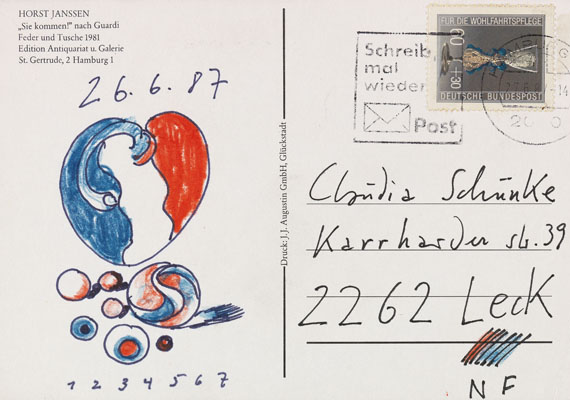 HORST JANSSEN
„Sie kommen!" nach Guardi
Feder und Tusche 1981
Edition Antiquariat u. Galerie
St. Gertrude, 2 Hamburg 1
26.6.87
1 2 3 4 5 6 7
Druck: J. J. Augustin GmbH, Glückstadt
Schreib
mal
wieder
Post
FÜR DIE WOHLFAHRTSPFLEGE
60+30
DEUTSCHE BUNDESPOST
Claudia Schünke
Karrharder str. 39
2262 Leck
N F